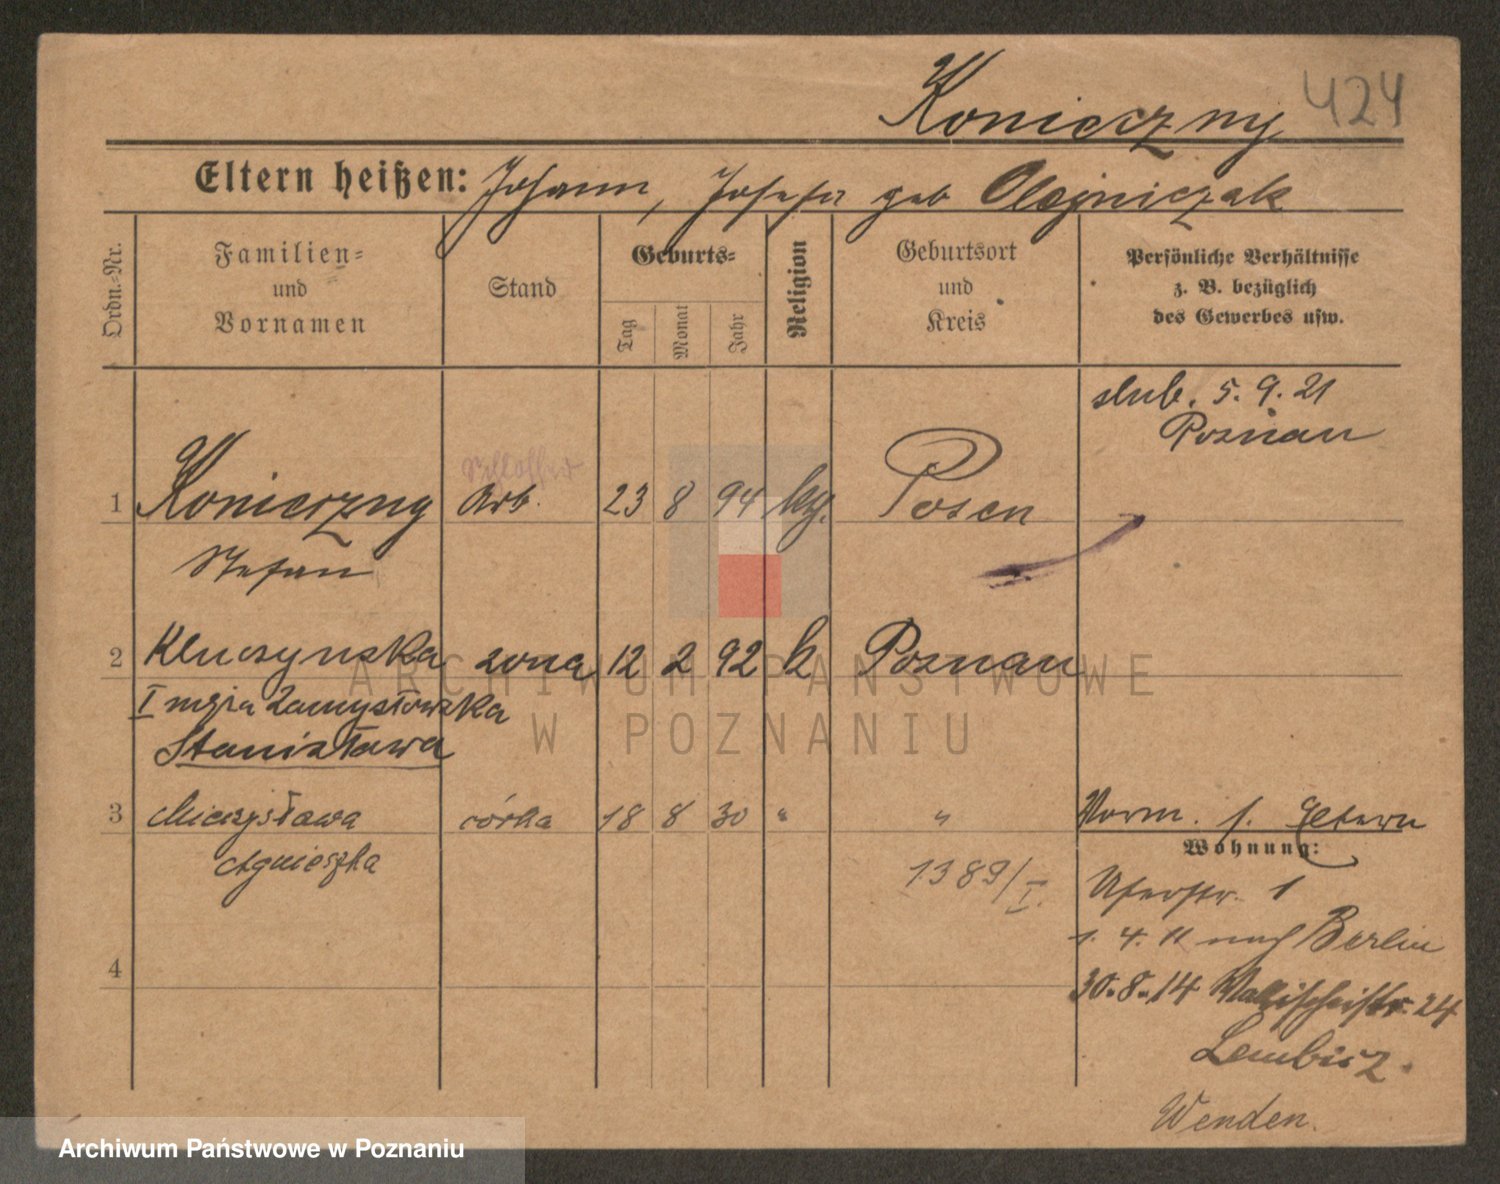 Konieczny 424
Eltern heißen: Johann, Josefa geb Olejniczak
Ordn.-Nr.
Familien- und Vornamen
Stand
Geburts-
Tag
Monat
Jahr
Religion
Geburtsort und Kreis
Persönliche Verhältnisse
z. B. bezüglich
des Gewerbes usw.
slub. 5. 9. 21
Poznan
Schlosser
1 Konieczny Arb. 23 8 94 kth. Posen
Stefan
2 Kluczynska zona 12 2 92 k Poznan
I męża Zamysłowska
Stanisława
3 Mieczysława córka 18 8 30 " " Vorm. s. Eltern
Agnieszka
Wohnung:
1389/I.
Uferstr. 1
1. 4. 11 nach Berlin
4
30.8.14 Wallischeistr. 24
Lembicz.
Wenden.
ARCHIWUM PAŃSTWOWE
W POZNANIU
Archiwum Państwowe w Poznaniu